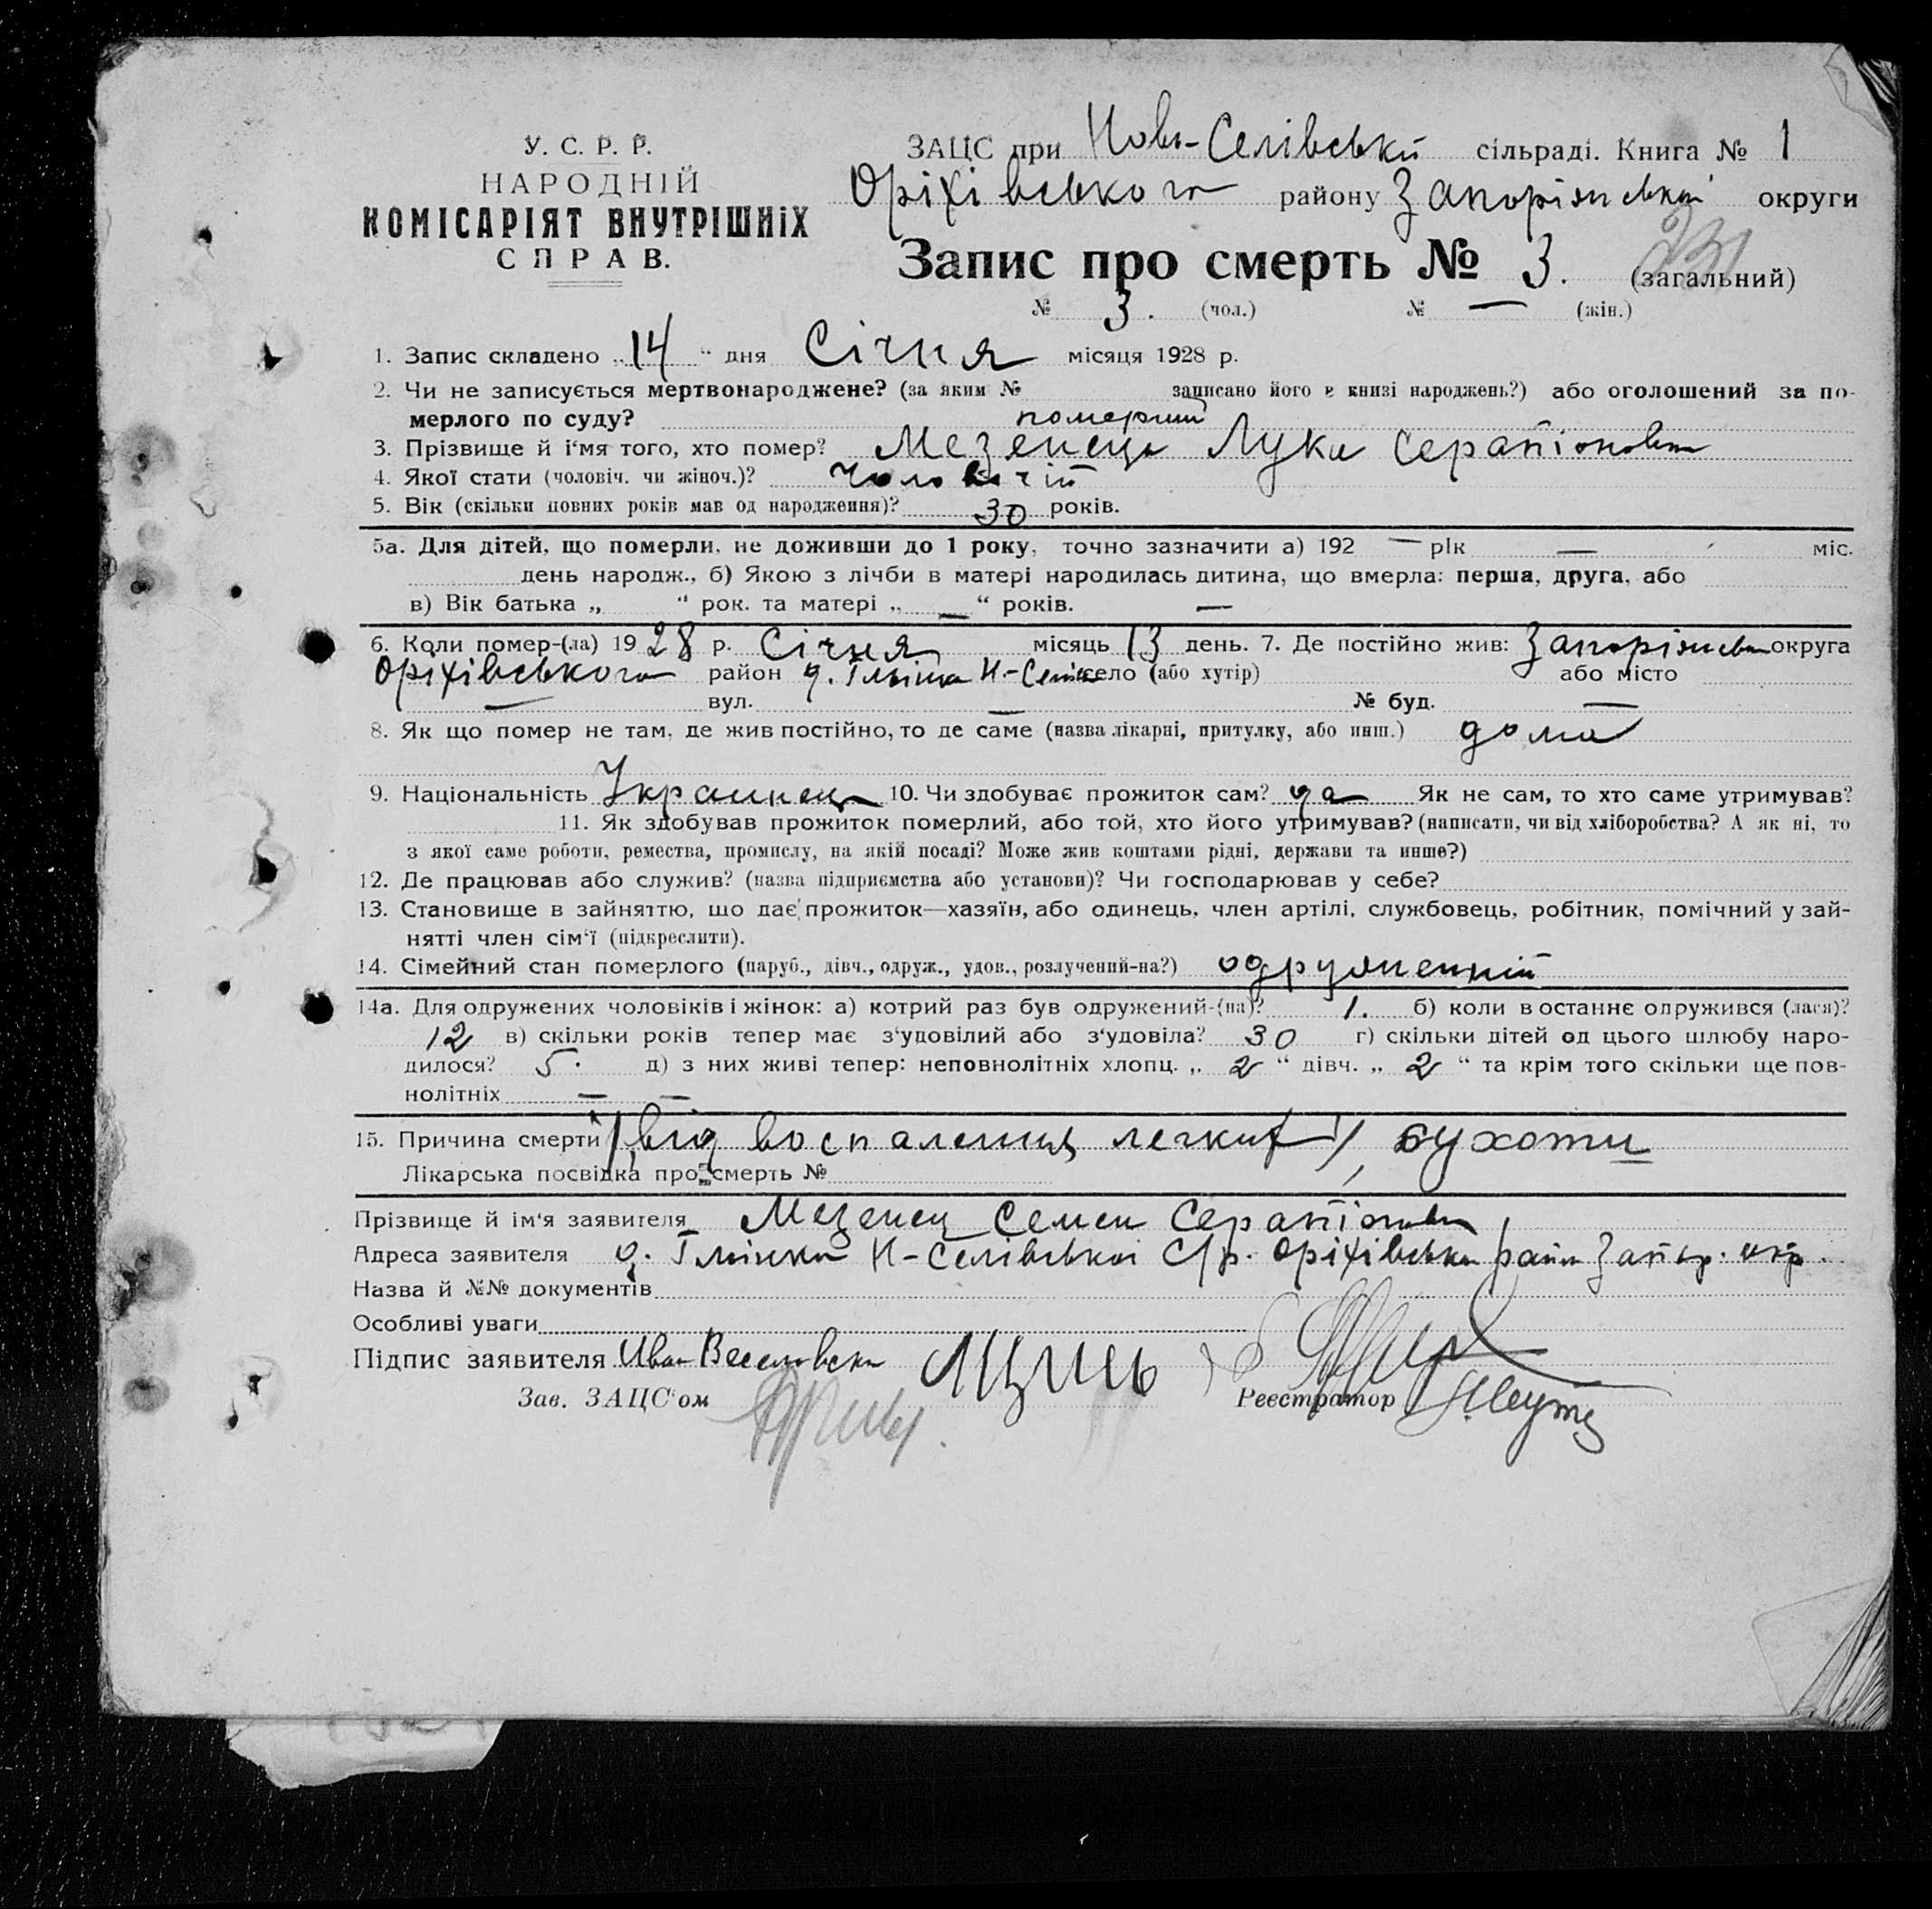 У. С. Р. Р.
НАРОДНІЙ
КОМІСАРІЯТ ВНУТРІШНІХ
СПРАВ.
ЗАЦС при Ново-Селівській сільраді. Книга № 1
Оріхівського району Запоріжської округи
Запис про смерть № 3. (загальний)
№ 3. (чол.) № — (жін.)
1. Запис складено „14" дня Січня місяця 1928 р.
2. Чи не записується мертвонароджене? (за яким № записано його в книзі народжень?) або оголошений за по-
мерлого по суду? померший
3. Прізвище й і'мя того, хто помер? Мезенець Лука Серапіонович
4. Якої стати (чоловіч. чи жіноч.)? чоловічій
5. Вік (скільки повних років мав од народження)? 30 років.
5а. Для дітей, що померли, не доживши до 1 року, точно зазначити а) 192 — рік — міс.
день народж., б) Якою з лічби в матері народилась дитина, що вмерла: перша, друга, або
в) Вік батька „ " рок. та матері „ — " років. —
6. Коли помер-(ла) 1928 р. Січня місяць 13 день. 7. Де постійно жив: Запоріжська округа
Оріхівського район Н.-Селів село (або хутір) або місто
— вул. — № буд. —
8. Як що помер не там, де жив постійно, то де саме (назва лікарні, притулку, або инш.) дома
9. Національність Украинець 10. Чи здобуває прожиток сам? да Як не сам, то хто саме утримував?
11. Як здобував прожиток померлий, або той, хто його утримував? (написати, чи від хліборобства? А як ні, то
з якої саме роботи, ремества, промислу, на якій посаді? Може жив коштами рідні, держави та инше?)
12. Де працював або служив? (назва підприємства або установи)? Чи господарював у себе?
13. Становище в зайняттю, що дає прожиток—хазяїн, або одинець, член артілі, службовець, робітник, помічний у зай-
нятті член сім'ї (підкреслити).
14. Сімейний стан померлого (паруб., дівч., одруж., удов., розлучений-на?) одруженний
14а. Для одружених чоловіків і жінок: а) котрий раз був одружений-(на)? 1. б) коли востаннє одружився (лася)?
12 в) скільки років тепер має з'удовілий або з'удовіла? 30 г) скільки дітей од цього шлюбу наро-
дилося? 5. д) з них живі тепер: неповнолітніх хлопц. „ 2 " дівч. „ 2 " та крім того скільки ще пов-
нолітніх — —
15. Причина смерти від воспаления легких, сухоти
Лікарська посвідка про смерть №
Прізвище й ім'я заявителя Мезенец Семен Серапіонович
Адреса заявителя Н-Селівської С/р. Оріхівськ райн Запор. окр.
Назва й №№ документів
Особливі уваги
Підпис заявителя Иван
Зав. ЗАЦС'ом
Реєстратор